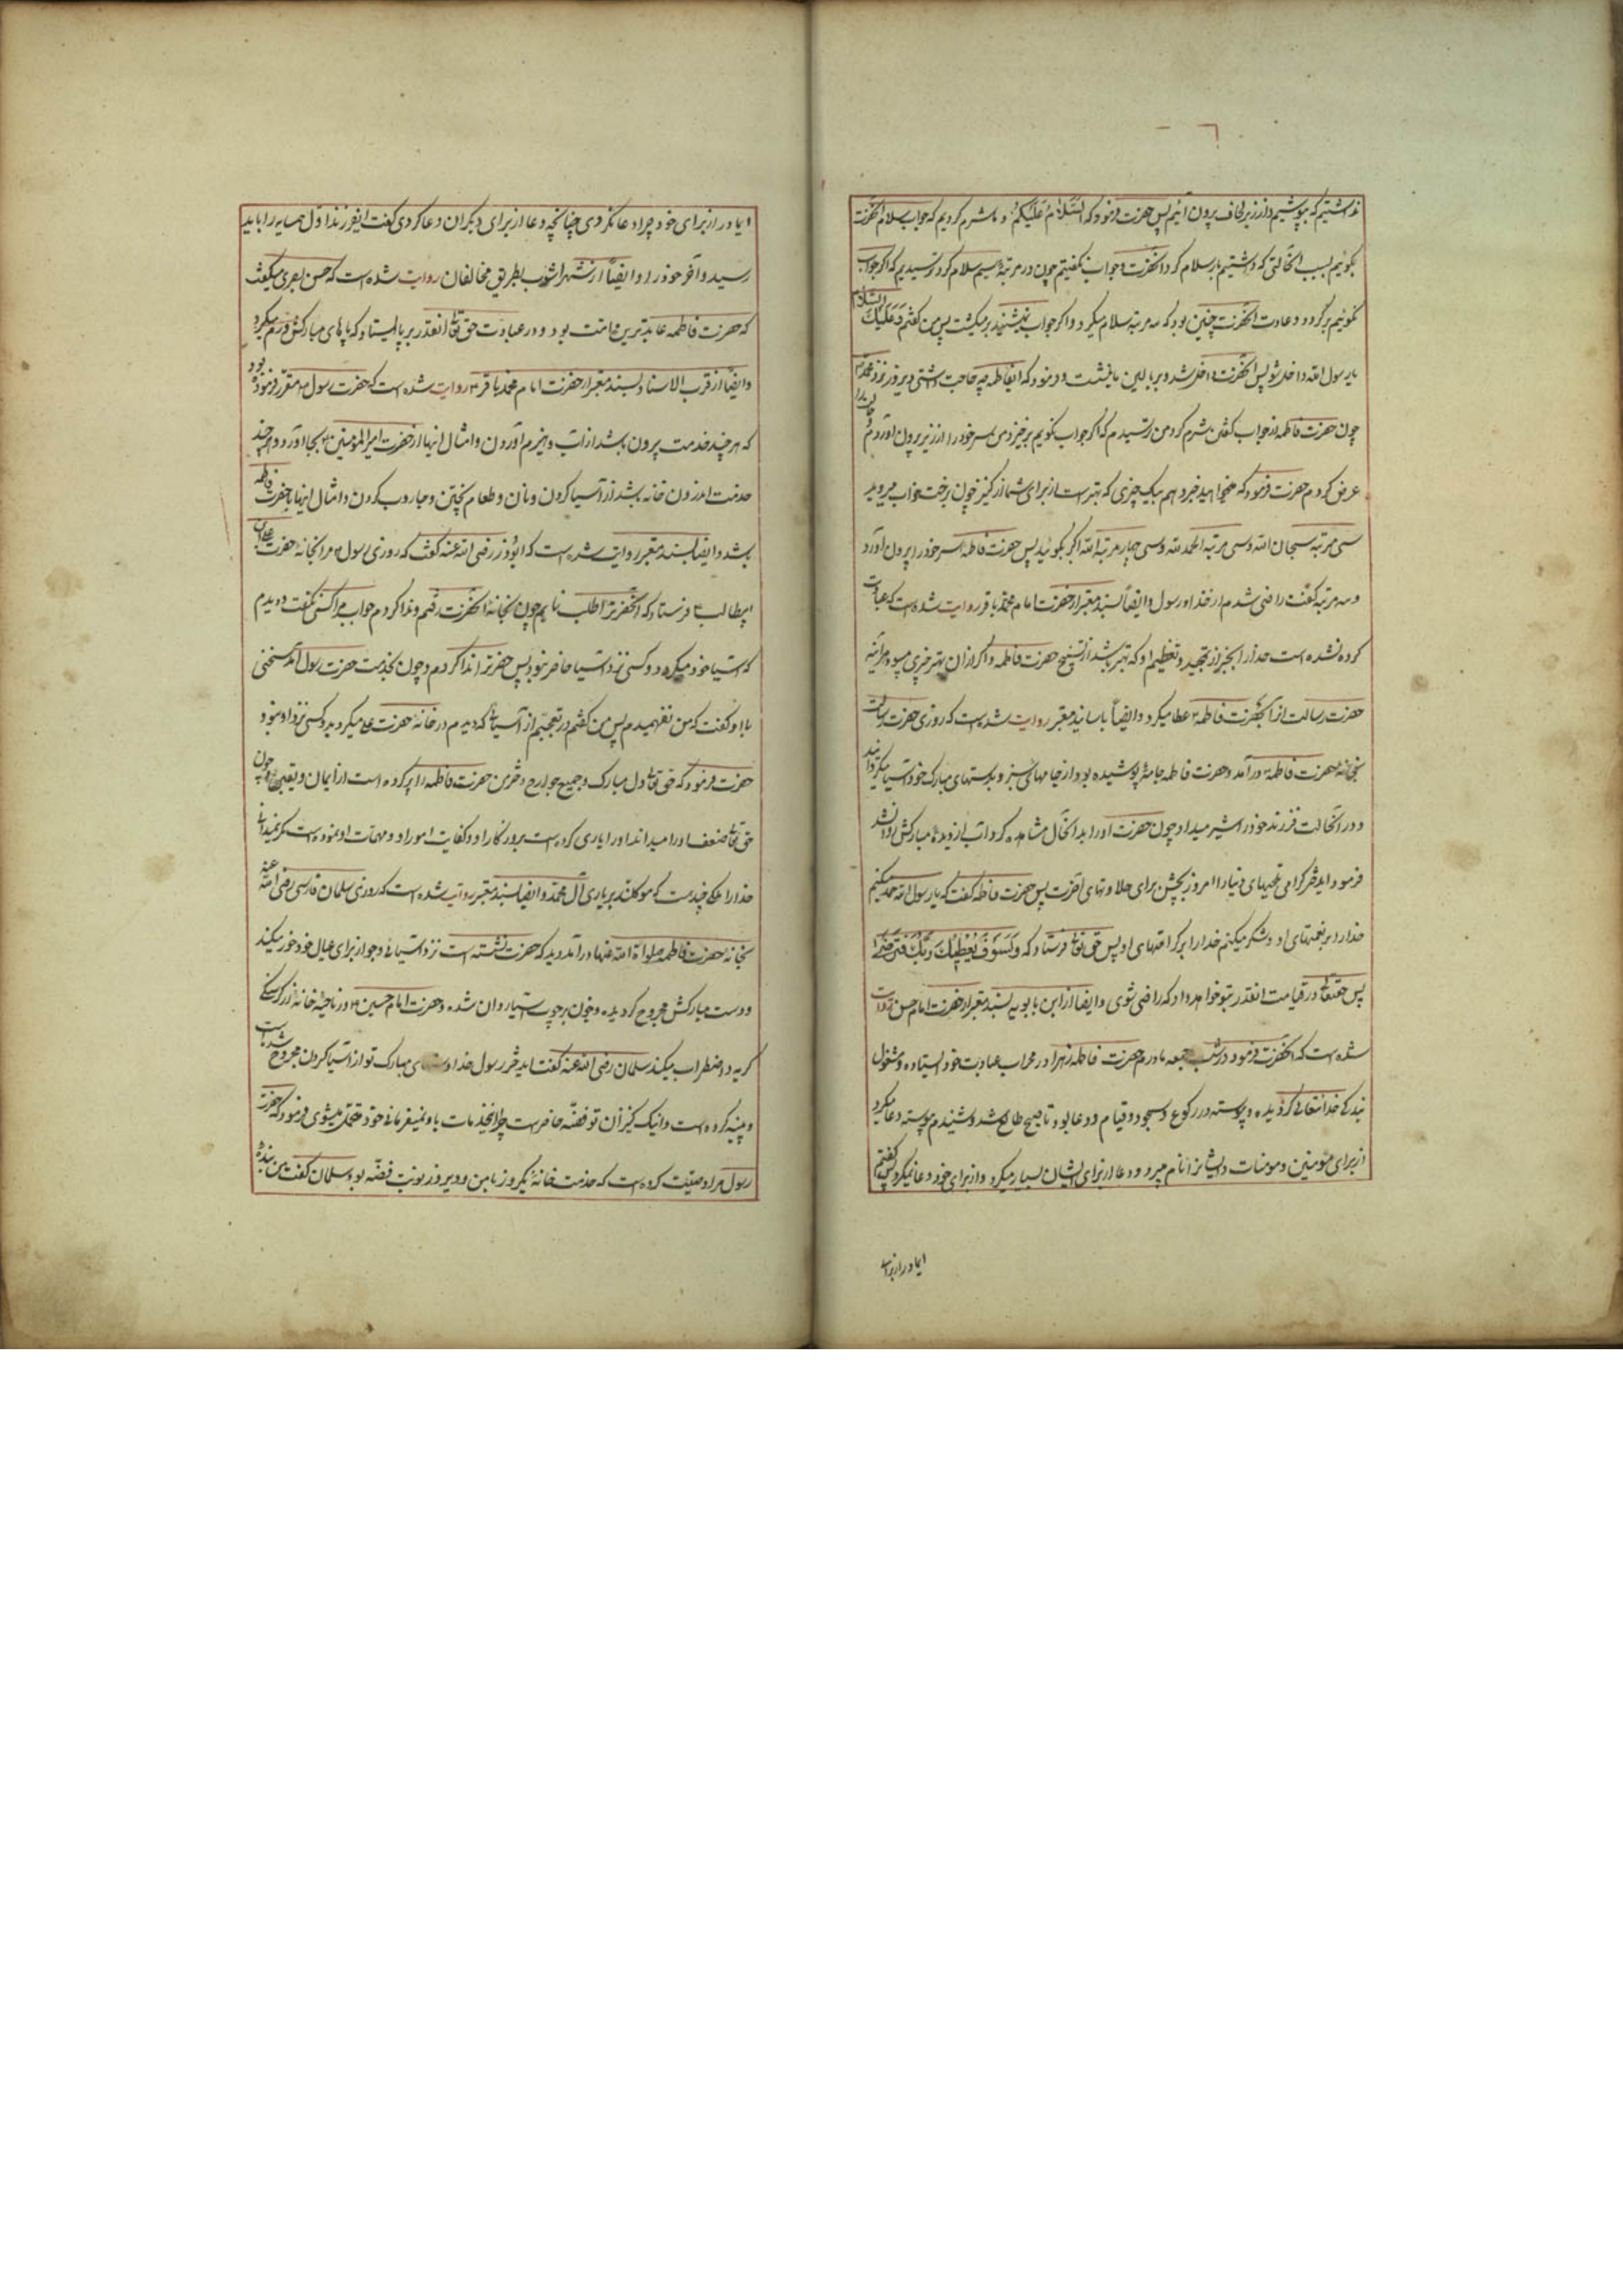 نداشتیم که بپوشیم و از زیر لحاف بیرون آئیم پس حضرت فرمود که السَّلامُ عَلَیکُم و ما شرم کردیم که جواب سلام آنحضرت
بگوئیم بسبب آنحالتی که داشتیم بار سلام کرد آنحضرت و جواب نگفتیم چون در مرتبه سیم سلام کرد ترسیدیم که اگر جواب
نگوئیم برگردد و عادت آنحضرت چنین بود که سه مرتبه سلام میکرد و اگر جواب نمیشنید بر میگشت پس من گفتم وَعَلَیکَ السّلام
یا رسول الله داخل شو پس آنحضرت داخل شد و بر بالین ما نشست و فرمود که ایفاطمه چه حاجت داشتی دیروز نزد محمد
چون حضرت فاطمه از جواب گفتن شرم کرد من ترسیدم که اگر جواب نگویم برخیزد من سر خود را از زیر بیرون آوردم و
عرض کردم حضرت فرمود که میخواهید خبر دهم بیک چیزی که بهتر است از برای شما از کنیز چون برخت خواب میروید
سی مرتبه سبحان الله و سی مرتبه الحمد لله و سی چهار مرتبه الله اکبر بگوئید پس حضرت فاطمه سر خود را بیرون آورد
و سه مرتبه گفت راضی شدم از خدا و رسول و ایضاً بسند معتبر از حضرت امام محمد باقر روایت شده است که عبادت
کرده نشده است خدا را بچیز از تمجید و تعظیم او که بهتر باشد از تسبیح حضرت فاطمه و اگر از آن بهتر چیزی میبود هر آینه
حضرت رسالت آنرا بحضرت فاطمه عطا میکرد و ایضاً باسانید معتبر روایت شده است که روزی حضرت رسالت
بخانهٔ حضرت فاطمه در آمد و حضرت فاطمه جامه پوشیده بود از جامهای شتر و بدستهای مبارک خود آسیا میگردانید
و در آنحالت فرزند خود را شیر میداد چون حضرت او را بدانحال مشاهده کرد آب از دیدهٔ مبارکش روان شد
فرمود ایدختر گرامی تلخیهای دنیا را امروز بچش برای حلاوتهای آخرت پس حضرت فاطمه گفت که یا رسول الله حمد میکنم
خدا را بر نعمتهای او و شکر میکنم خدا را بر کرامتهای او پس حق تعالی فرستاد که وَلَسَوفَ یُعطِیکَ رَبُّکَ فَتَرضی
پس حقتعالی در قیامت آنقدر بتو خواهد داد که راضی شوی و ایضاً از ابن بابویه بسند معتبر از حضرت امام حسن روایت
شده است که آنحضرت فرمود در شب جمعه مادرم حضرت فاطمه زهرا در محراب عبادت خود ایستاده و مشغول
بندگی خدا تعالی گردیده و پیوسته در رکوع و سجود و قیام و دعا بود تا صبح طالع شد و شنیدم پیوسته دعا میکرد
از برای مؤمنین و مومنات و ایشانرا نام میبرد و دعا از برای ایشان بسیار میکرد و از برای خود دعا نمیکرد پس گفتم
ایمادر از برای
ایمادر از برای خود چرا دعا نکردی چنانچه دعا از برای دیگران دعا کردی گفت ایفرزند اول همسایه را باید
رسید و آخر خود را و ایضاً از شهر اشوب بطریق مخالفان روایت شده است که حسن بصری میگفت
که حضرت فاطمه عابدترین امت بود و در عبادت حق تعالی آنقدر بر پا ایستاد که پاهای مبارکش ورم میکرد
و ایضاً از قرب الاسناد بسند معتبر از حضرت امام محمد باقر روایت شده است که حضرت رسول مقرر فرموده بود
که هر چند خدمت بیرون باشد از آب و هیزم آوردن و امثال اینها از حضرت امیر المؤمنین بجا آورد و هر چند
خدمت اندرون خانه باشد از آسیا کردن و نان و طعام پختن و جاروب کردن و امثال اینها با حضرت فاطمه
باشد و ایضاً بسند معتبر روایت شده است که ابوذر رضی الله عنه گفت که روزی رسول مرا بخانه حضرت علی بن
ابیطالب فرستاد که آنحضرترا طلب نمایم چون بخانهٔ آنحضرت رفتم و ندا کردم جواب مرا کسی نگفت و دیدم
که آسیا خود میگردد و کسی نزد آسیا حاضر نبود پس حضرترا ندا کردم و چون بخدمت حضرت رسول آمد سخنی
با او گفت که من نفهمیدم پس من گفتم در تعجبم از آسیائی که دیدم در خانهٔ حضرت علی میگردید و کسی نزد او نبود
حضرت فرمود که حق تعالی دل مبارک و جمیع جوارح دختر من حضرت فاطمه را پر کرده است از ایمان و یقین و چون
حق تعالی ضعف او را میداند او را یاری کرده است بر روزگار او و کفایت امور او و مهمات او نموده است مگر نمیدانی
خدا را ملکی چند است که موکلند بر یاری آل محمد و ایضاً بسند معتبر روایت شده است که روزی سلمان فارسی رضی الله عنه
بخانه حضرت فاطمه صلوات الله علیها در آمد دید که حضرت نشسته است نزد آسیائی و جو از برای عیال خود خورد میکند
و دست مبارکش مجروح گردیده و خون بر چوب آسیا روان شده و حضرت امام حسین در ناحیهٔ خانه از گرسنگی
گریه و اضطراب میکند سلمان رضی الله عنه گفت ایدختر رسول خدا دستهای مبارک تو از آسیا کردن مجروح شده است
و پینه کرده است و اینک کنیز آن تو فضّه حاضر است چرا اینخدمات باو نمیفرمائی خود متحمل میشوی فرمود که حضرت
رسول مرا وصیّت کرده است که خدمت خانه یکروز با من و دیروز نوبت فضّه بود سلمان گفت من بندهٔ